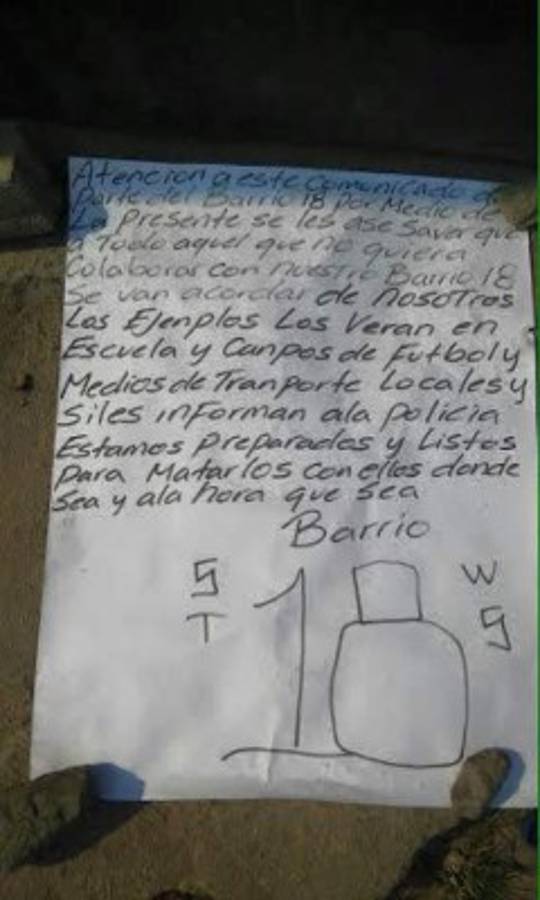 Atencion a este comunicado de
parte del Barrio 18 por Medio de
La presente se les ase saver que
a Todo aquel que no quiera
Colaborar con nuestro Barrio 18
se van acordar de nosotros
Los Ejenplos Los Veran en
Escuela y Canpos de Futbol y
Medios de Tranporte Locales y
siles informan ala policia
Estamos preparados y Listos
para Matarlos con ellos donde
sea y ala hora que sea
Barrio
S W
T 18 S